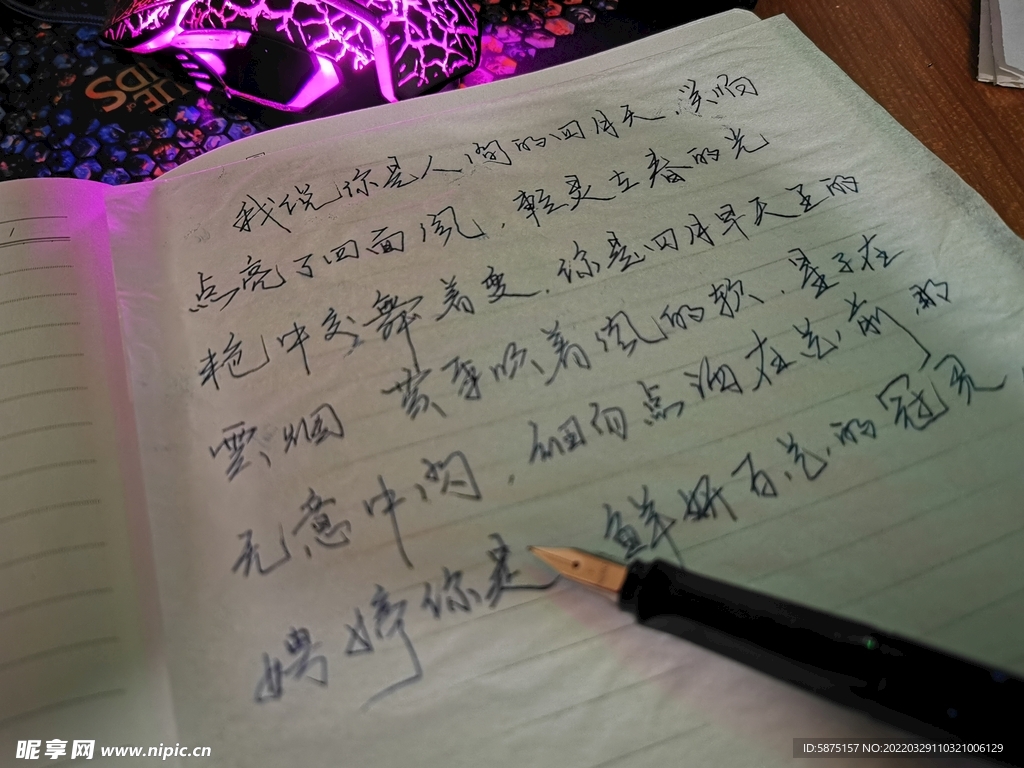 我说你是人间的四月天,笑响
点亮了四面风,轻灵在春的光
艳中交舞着变,你是四月早天里的
雲烟 黄昏吹着风的软,星子在
无意中闪,细雨点洒在花前 那
娉婷你是 鲜妍百花的冠冕
UE
DS
昵享网 www.nipic.cn
ID:5875157 NO:20220329110321006129